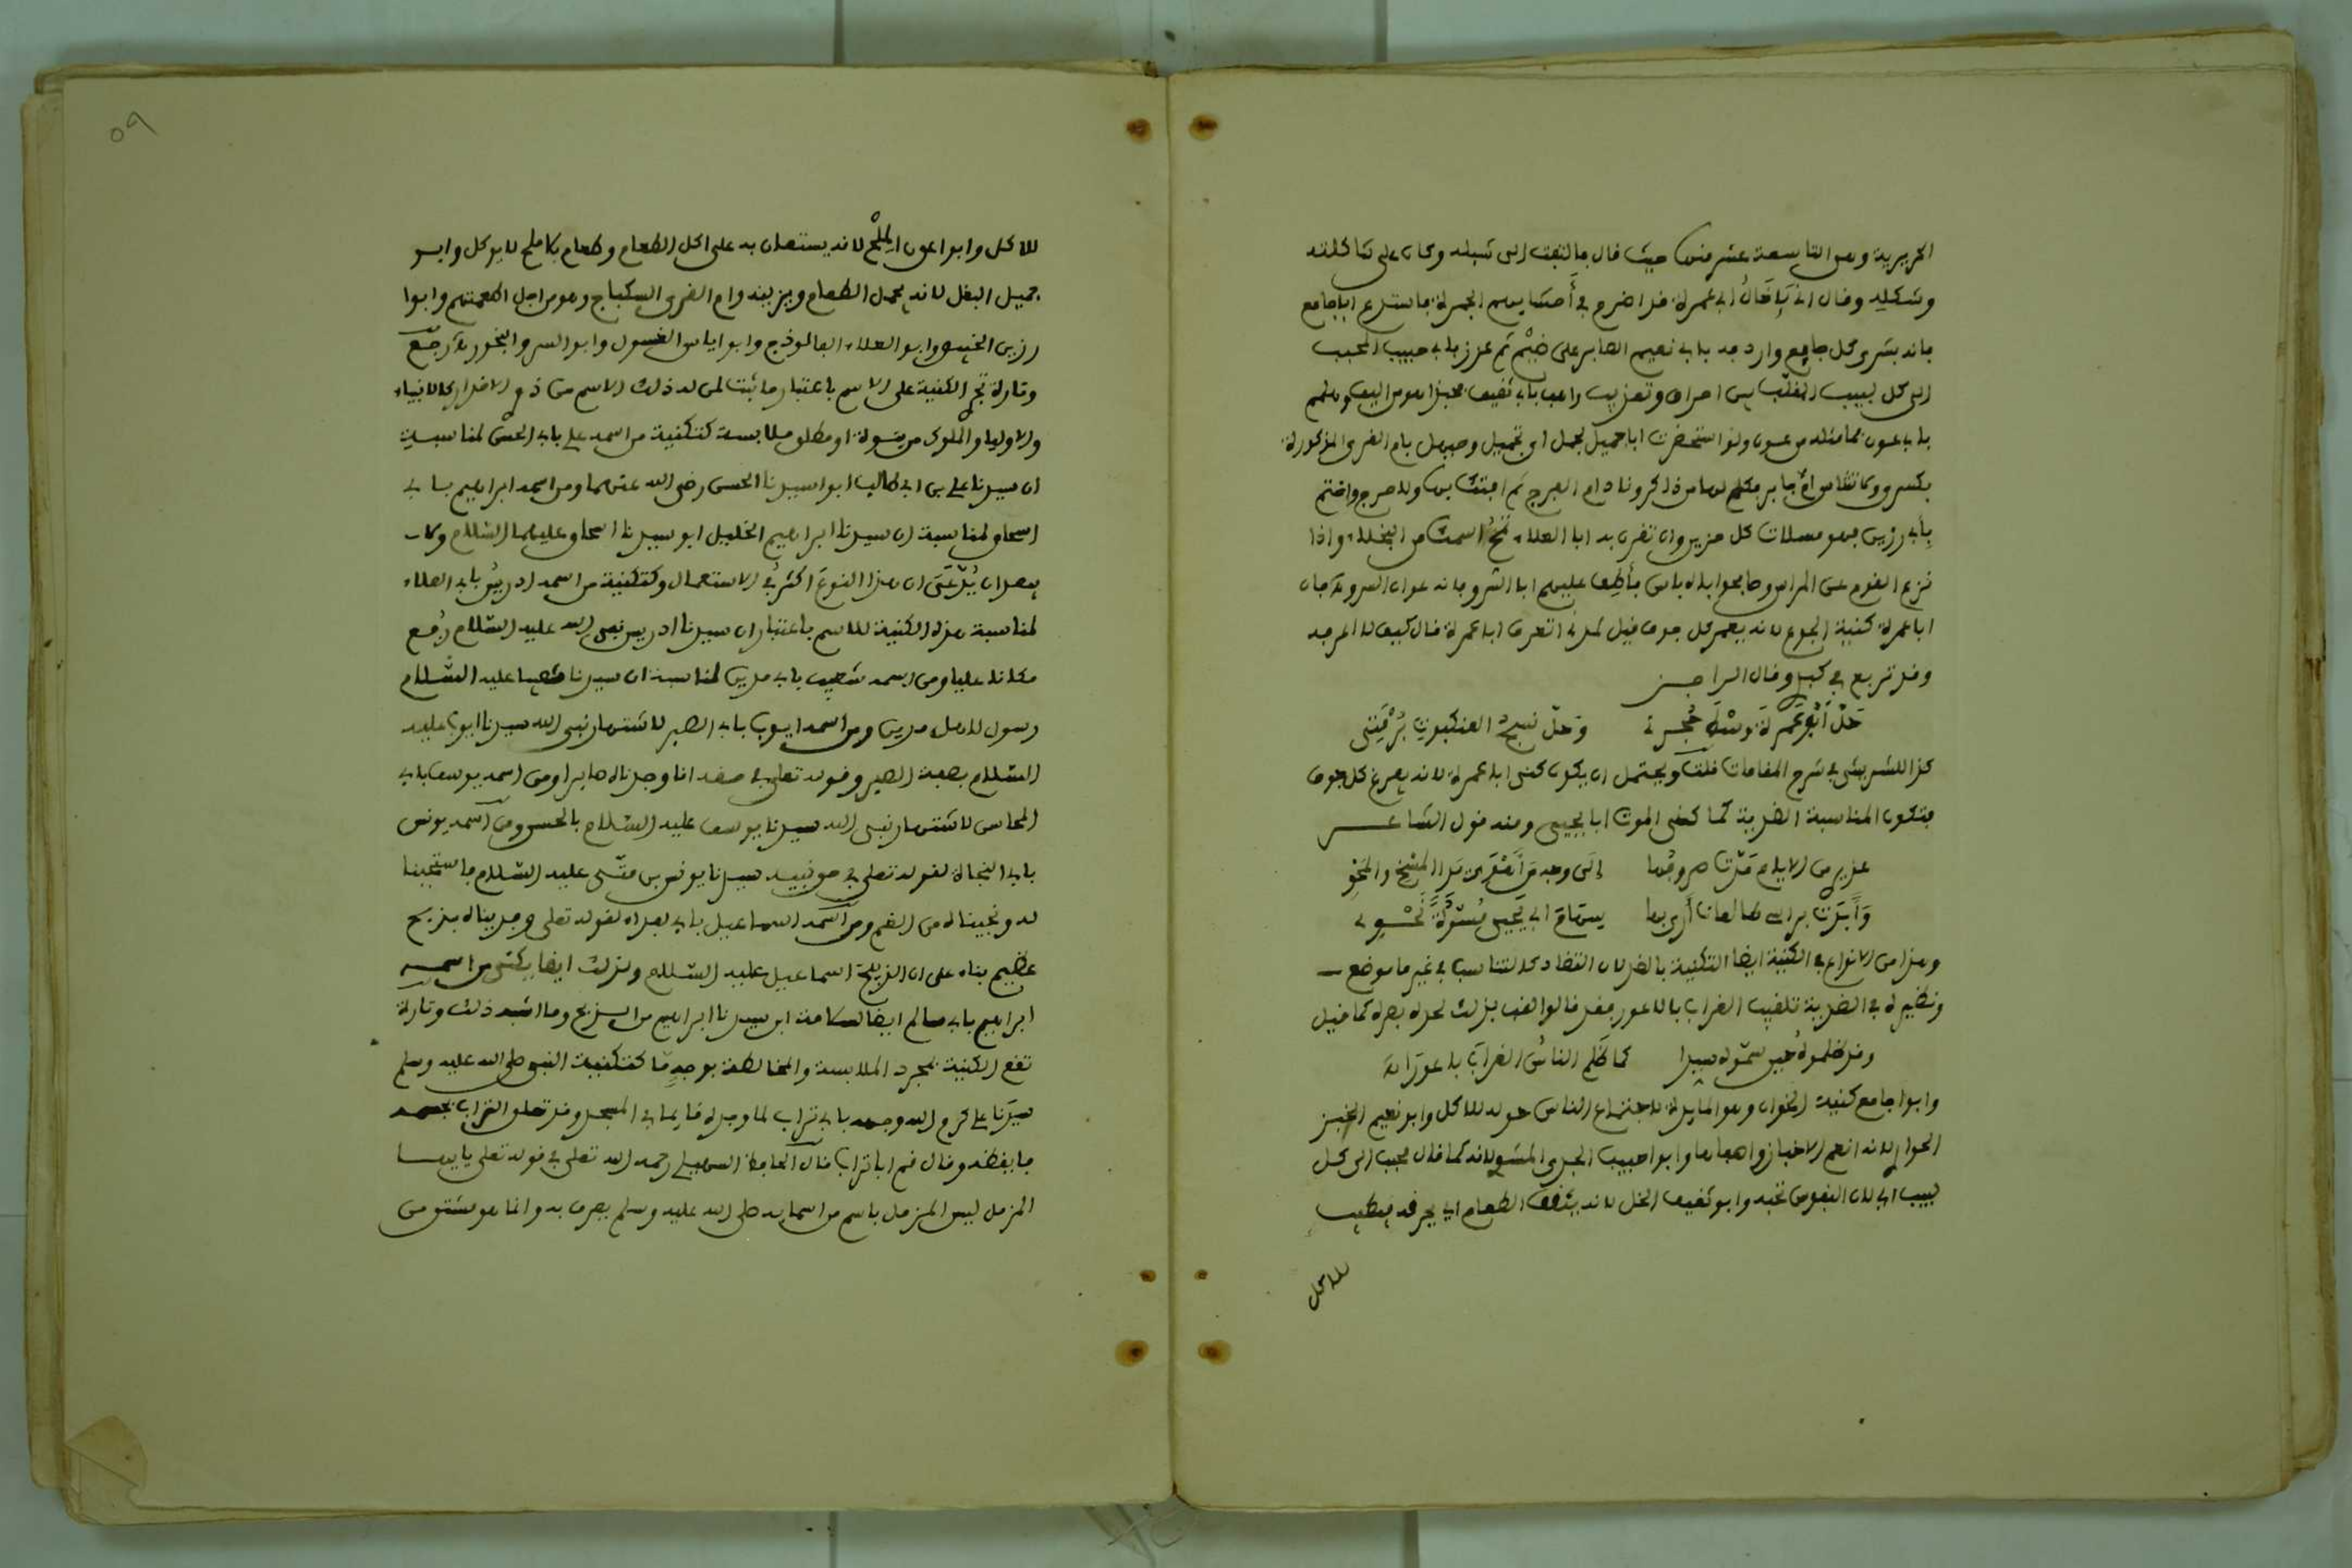 الحريرية وهي التاسعة عشر منها حيث قال فالتفت الى شبله وكان على شاكلته
وشكله وقال اني لإخال ابي عمرة قد اضرم في أحشايهم الجمرة فاستدع ابا جامع
فانه بشرى كل جايع واردفه بابي نعيم الصابر على ضيم ثم عزز بابي حبيب المحبب
الى كل لبيب المقلب بين احراق وتعذيب واهب بابي ثقيف فحبذا هو من اليف وهلمم
بابي عون فما مثله من عون ولو استحضرت ابا جميل لجمل اي تجميل وحيهل بام القرى المذكورة
بكسرى ولا تتناس ام جابر فكم لها من ذاكر وناد ام الفرج ثم افتك بها ولا حرج واختم
بأبي رزين فهو مسلاة كل حزين وان تقرن به ابا العلاء تمح اسمك من البخلاء واذا
نزع القوم عن المراس وصافحوا ابا اياس فأطف عليهم ابا السرو فانه عوان السرو فان
ابا عمرة كنية الجوع لانه يعمر كل جوف قيل لمدني اتعرف ابا عمرة قال كيف لا اعرفه
وقد تربع في كبدي وقال الراجز
حَلّ أبو عَمرة وسْط حُجرتي وحلّ نسج العنكبوت بُرْمَتي
كذا للشريشي في شرح المقامات قلت ويحتمل ان يكون كنى ابا عمرة لانه يفرغ كل جوف
فتكون المناسبة الضدية كما كنى الموت ابا يحيى ومنه قول الشاعر
عذيري من الايام مدّت صروفها إلى وجه من أهوى يد المسخ والمحو
وأبدت براسي طالعات أرى بها سهام ابي يحيى مسدّدة نحوي
وهذا من الانواع في الكنية ايضا التكنية بالضد لان التضاد كالتناسب في غير ما موضع
ونظيره في الضدية تلقيب الغراب بالاعور فقد قالوا لقب بذلك لحدة بصره كما قيل
وقد ظلموه حين سمّوه سيدا كما ظَلم الناسُ الغرابَ باعورا انتهى
وابو جامع كنية الخوان وهو المايدة لاجتماع الناس حوله للاكل وابو نعيم الخبز
الحوارى لانه انعم الاخباز واصفاها وابو حبيب الجدي المشوي لانه كما قال محبب الى كل
لبيب اي لان النفوس تحبه وابو ثقيف الخل لانه يثقف الطعام اي يحرفه فيطيب
للاكل
٥٩
للاكل وابو عون الملْح لانه يستعان به على اكل الطعام وطعام بلا ملح لا يوكل وابو
جميل البقل لانه يجمل الطعام ويزينه وام القرى السكباج وهو من اجل اطعمتهم وابو
رزين الخبيص وابو العلاء الفالوذج وابو اياس الغسول وابو السرو البخور رجع
وتارة تجري الكنية على الاسم باعتبار ما ثبت لمن له ذلك الاسم من ذوي الاقدار كالانبياء
والاولياء والملوك من بنوة او مطلق ملابسة كتكنية من اسمه علي بابي الحسن لمناسبة
ان سيدنا علي بن ابي طالب ابو سيدنا الحسن رضي الله عنهما ومن اسمه ابراهيم بابي
اسحاق لمناسبة ان سيدنا ابراهيم الخليل ابو سيدنا اسحاق عليهما السلام وكاد
بعض ان يُدّعَى ان هذا النوع اكثري الاستعمال وكتكنية من اسمه ادريس بابي العلاء
لمناسبة هذه الكنية للاسم باعتبار ان سيدنا ادريس نبي الله عليه السلام رُفع
مكانا عليا ومن اسمه شعيب بابي مدين لمناسبة ان سيدنا شعيبا عليه السلام
رسول لاهل مدين ومن اسمه ايوب بابي الصبر لاشتهار نبي الله سيدنا ايوب عليه
السلام بصفة الصبر وقوله تعلى في حقه انا وجدناه صابرا ومن اسمه يوسف بابي
المحاسن لاشتهار نبي الله سيدنا يوسف عليه السلام بالحسن ومن اسمه يونس
بابي النجاة لقوله تعلى في حق نبيه سيدنا يونس بن متّى عليه السلام فاستجبنا
له ونجيناه من الغم ومن اسمه اسماعيل بابي الفداء لقوله تعلى وفديناه بذبح
عظيم بناء على ان الذبيح اسماعيل عليه السلام ولذلك ايضا يكنى من اسمه
ابراهيم بابي سالم ايضا لسلامة ابن سيدنا ابراهيم من الذبح وما اشبه ذلك وتارة
تقع الكنية لمجرد الملابسة والمخالطة بوجهٍ مّا كتكنية النبي صلى الله عليه وسلم
سيدنا علي كرم الله وجهه بابي تراب لما وجده نايما في المسجد وقد تعلق التراب بجنبه
فايقظه وقال قم ابا تراب قال الحافظ السهيلي رحمه الله تعلى في قوله تعلى يا ايها
المزمل ليس المزمل باسم من اسمايه صلى الله عليه وسلم يعرف به وانما هو مشتق من